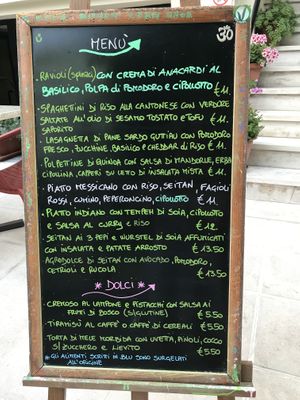 MENÙ
ॐ
. RAVIOLI (SPIRU) CON CREMA DI ANACARDI AL
BASILICO, POLPA DI POMODORO E CIPOLLOTTO € 11.
. SPAGHETTINI DI RISO ALLA CANTONESE CON VERDURE
SALTATE ALL'OLIO DI SESAMO TOSTATO E TOFU
SAPORITO € 11.
. LASAGNETTA DI PANE SARDO GUTTIAU CON POMODORO
FRESCO, ZUCCHINE, BASILICO E CHEDDAR DI RISO € 11.
. POLPETTINE DI QUINOA CON SALSA DI MANDORLE, ERBA
CIPOLLINA, CAPPERI SU LETTO DI INSALATA MISTA € 11.
. PIATTO MESSICANO CON RISO, SEITAN, FAGIOLI
ROSSI, CUMINO, PEPERONCINO, CIPOLLOTTO € 11.
. PIATTO INDIANO CON TEMPEH DI SOIA, CIPOLLOTTO
E SALSA AL CURRY E RISO € 12.
. SEITAN AI 3 PEPI E WURSTEL DI SOIA AFFUMICATI
CON INSALATA E PATATE ARROSTO € 13.50
. AGRODOLCE DI SEITAN CON AVOCADO, POMODORO,
CETRIOLI E RUCOLA € 13.50
* DOLCI *
. CREMOSO AL LAMPONE E PISTACCHI CON SALSA AI
FRUTTI DI BOSCO (S/GLUTINE) € 5.50
. TIRAMISÙ AL CAFFE' O CAFFE' DI CEREALI € 5.50
. TORTA DI MELE MORBIDA CON UVETTA, PINOLI, COCCO
S/ZUCCHERO E LIEVITO € 5.50
* GLI ALIMENTI SCRITTI IN BLU SONO SURGELATI
ALL'ORIGINE